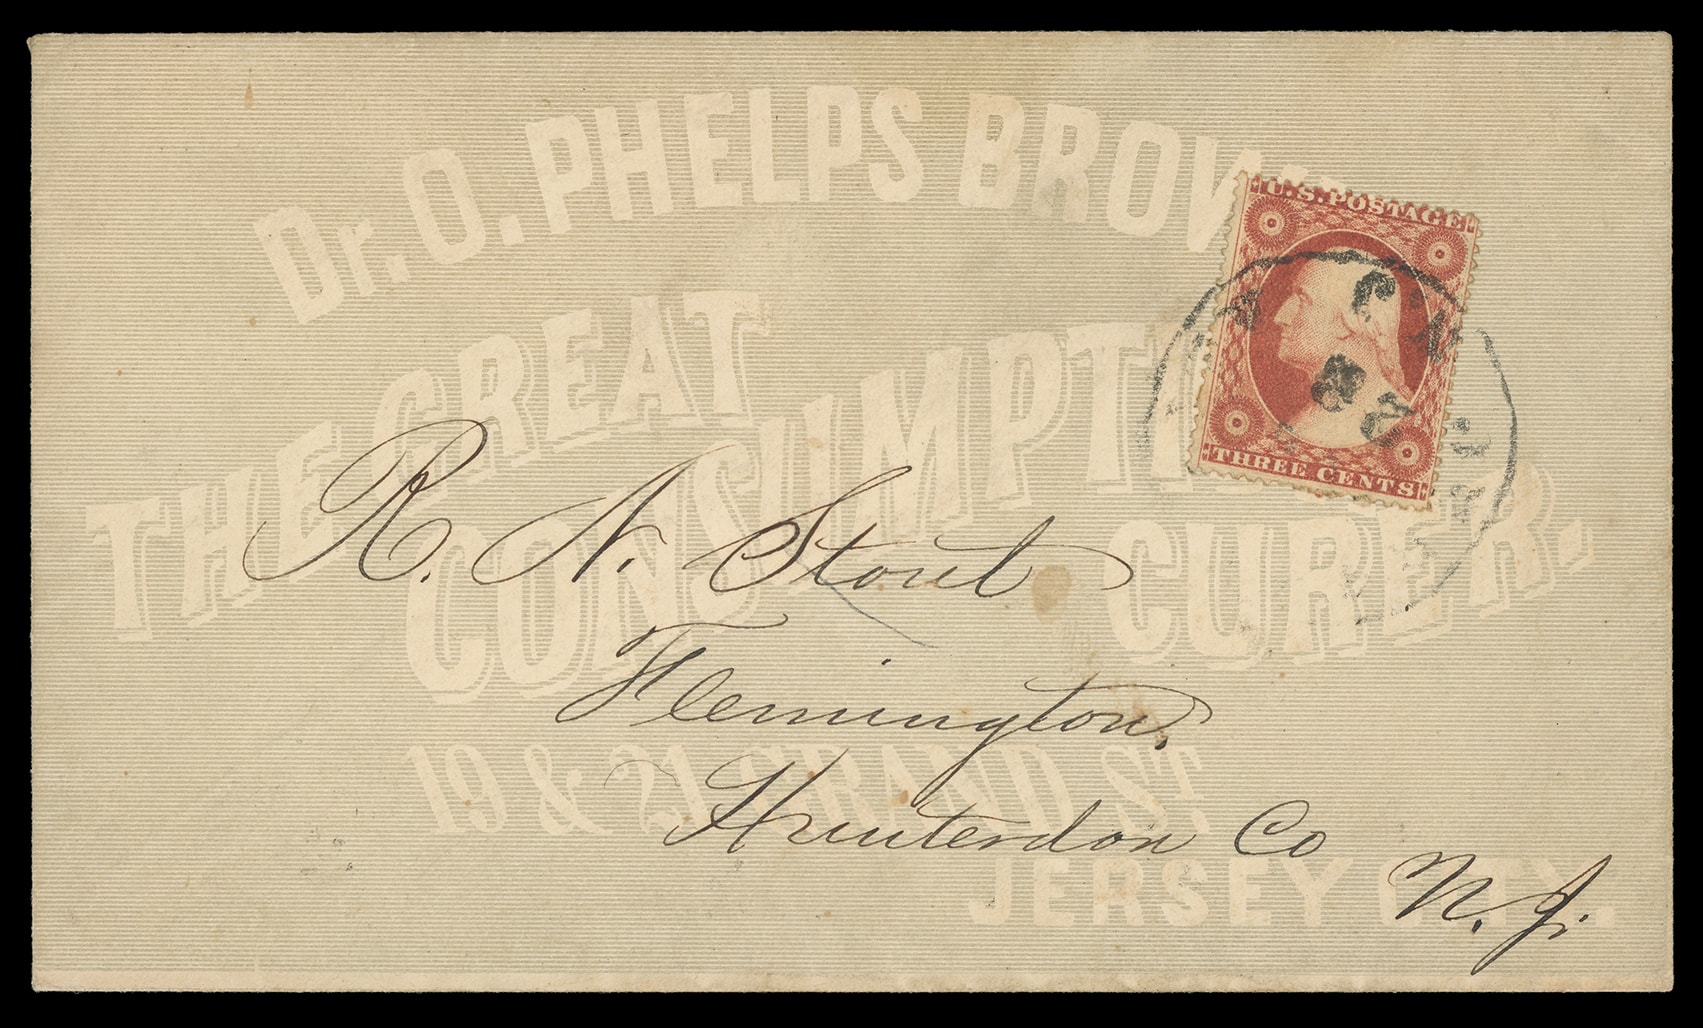 Dr. O. PHELPS BROWN
THE GREAT
CONSUMPTI
CURER.
19 & 21 GRAND ST.
JERSEY CITY.
U.S. POSTAGE
THREE CENTS
28
N.J.
R. N. Stout
Flemington.
Hunterdon Co
N. J.